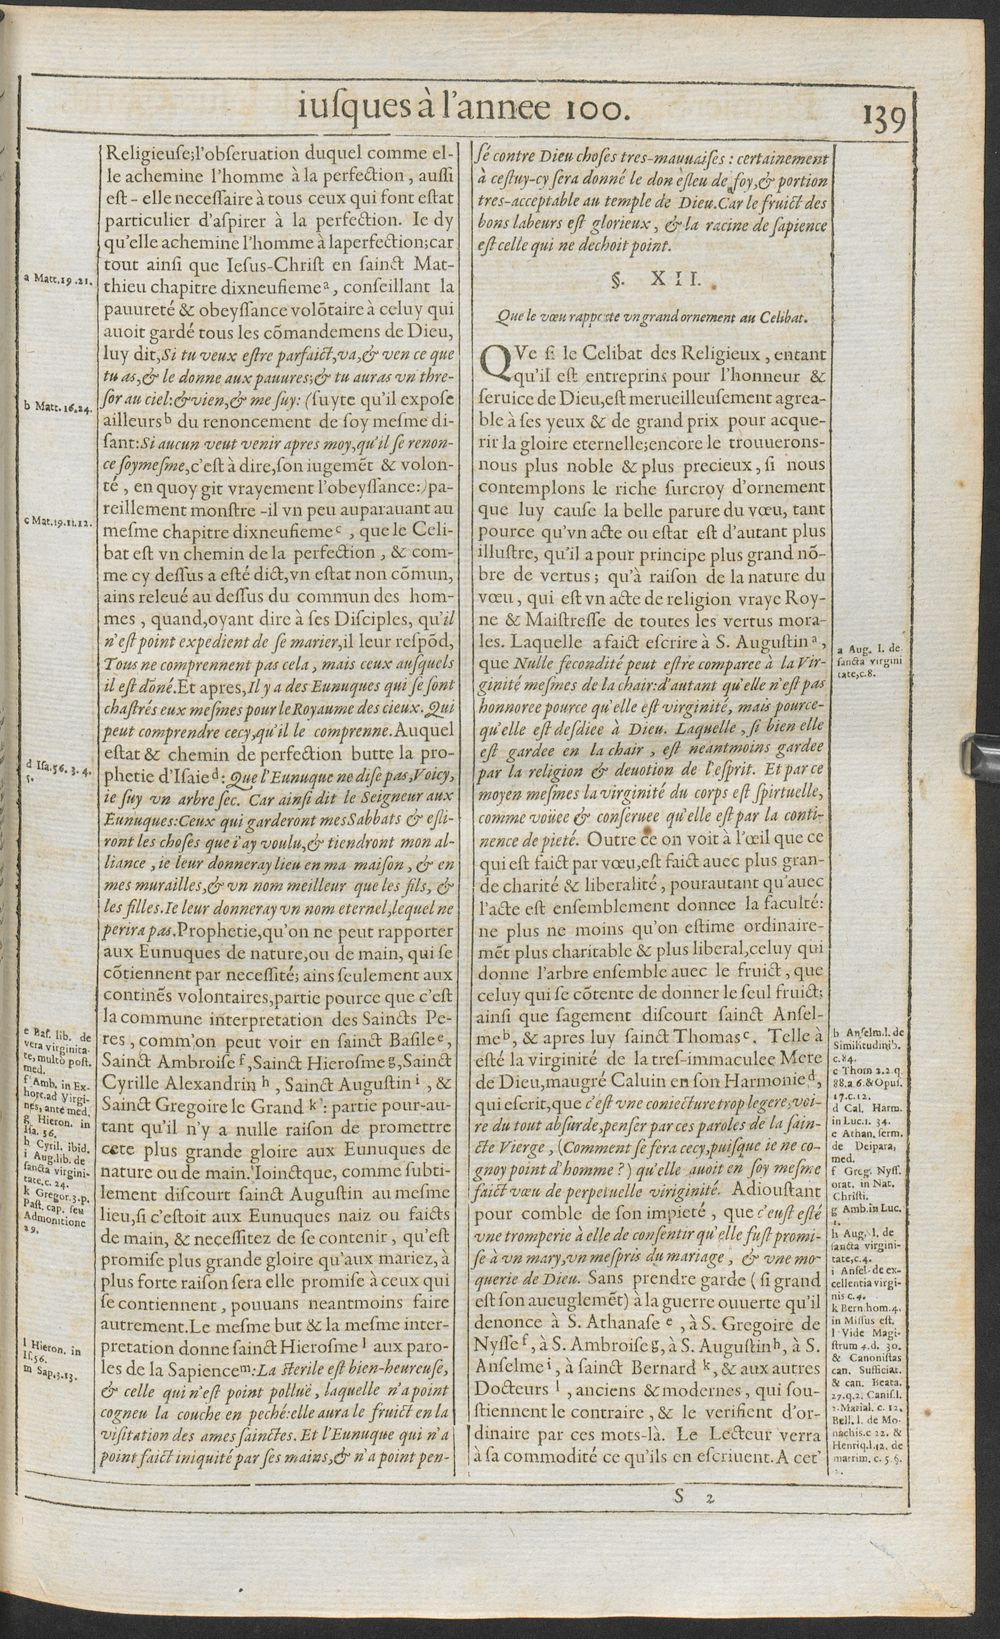 iuſques à l'annee 100.
139
Religieuſe;l'obſeruation duquel comme el-
le achemine l'homme à la perfection, auſſi
eſt - elle neceſſaire à tous ceux qui font eſtat
particulier d'aſpirer à la perfection. Ie dy
qu'elle achemine l'homme à laperfection;car
tout ainſi que Ieſus-Chriſt en ſainct Mat-
thieu chapitre dixneufieme a, conſeillant la
pauureté & obeyſſance volõtaire à celuy qui
auoit gardé tous les cõmandemens de Dieu,
luy dit,Si tu veux eſtre parfaict,va,& ven ce que
tu as,& le donne aux pauures;& tu auras vn thre-
ſor au ciel:& vien,& me ſuy: (ſuyte qu'il expoſe
ailleurs b du renoncement de ſoy meſme di-
ſant:Si aucun veut venir apres moy,qu'il ſe renon-
ce ſoymeſme,c'eſt à dire,ſon iugemẽt & volon-
té, en quoy git vrayement l'obeyſſance:)pa-
reillement monſtre -il vn peu auparauant au
meſme chapitre dixneufieme c, que le Celi-
bat eſt vn chemin de la perfection, & com-
me cy deſſus a eſté dict,vn eſtat non cõmun,
ains releué au deſſus du commun des hom-
mes, quand,oyant dire à ſes Diſciples, qu'il
n'eſt point expedient de ſe marier,il leur reſpõd,
Tous ne comprennent pas cela, mais ceux auſquels
il eſt dõné.Et apres,Il y a des Eunuques qui ſe ſont
chaſtrés eux meſmes pour le Royaume des cieux. Qui
peut comprendre cecy,qu'il le comprenne.Auquel
eſtat & chemin de perfection butte la pro-
phetie d'Iſaie d: Que l'Eunuque ne diſe pas,Voicy,
ie ſuy vn arbre ſec. Car ainſi dit le Seigneur aux
Eunuques:Ceux qui garderont mesSabbats & eſli-
ront les choſes que i'ay voulu,& tiendront mon al-
liance, ie leur donneray lieu en ma maiſon, & en
mes murailles,& vn nom meilleur que les fils, &
les filles.Ie leur donneray vn nom eternel,lequel ne
perira pas.Prophetie,qu'on ne peut rapporter
aux Eunuques de nature,ou de main, qui ſe
cõtiennent par neceſſité; ains ſeulement aux
continẽs volontaires,partie pource que c'eſt
la commune interpretation des Saincts Pe-
res, comm'on peut voir en ſainct Baſile e,
Sainct Ambroiſe f, Sainct Hieroſme g, Sainct
Cyrille Alexandrin h, Sainct Auguſtin i, &
Sainct Gregoire le Grand k: partie pour-au-
tant qu'il n'y a nulle raiſon de promettre
cete plus grande gloire aux Eunuques de
nature ou de main. Ioinctque, comme ſubti-
lement diſcourt ſainct Auguſtin au meſme
lieu,ſi c'eſtoit aux Eunuques naiz ou faicts
de main, & neceſſitez de ſe contenir, qu'eſt
promiſe plus grande gloire qu'aux mariez, à
plus forte raiſon ſera elle promiſe à ceux qui
ſe contiennent, pouuans neantmoins faire
autrement.Le meſme but & la meſme inter-
pretation donne ſainct Hieroſme l aux paro-
les de la Sapience m: La ſterile eſt bien-heureuſe,
& celle qui n'eſt point polluë, laquelle n'a point
cogneu la couche en peché:elle aura le fruict en la
viſitation des ames ſainctes. Et l'Eunuque qui n'a
point faict iniquité par ſes mains,& n'a point pen-
a Matt.19.21.
b Matt.16.24.
c Mat.19.11.12.
d Iſa.56. 3. 4.
5.
e Baſ. lib. de
vera virginita-
te, multò poſt.
med.
f Amb. in Ex-
hort.ad Virgi-
nes, ante med.
g Hieron. in
Iſa. 56.
h Cyril. ibid.
i Aug.lib. de
ſancta virgini-
tate.c. 24.
k Gregor.3.p.
Paſt. cap. ſeu
Admonitione
29.
l Hieron. in
Iſ.56.
m Sap.3.13.
ſé contre Dieu choſes tres-mauuaiſes : certainement
à ceſtuy-cy ſera donné le don eſleu de foy,& portion
tres-acceptable au temple de Dieu.Car le fruict des
bons labeurs eſt glorieux, & la racine de ſapience
eſt celle qui ne dechoit point.
§. XII.
Que le vœu rapporte vn grand ornement au Celibat.
QVe ſi le Celibat des Religieux, entant
qu'il eſt entreprins pour l'honneur &
ſeruice de Dieu,eſt merueilleuſement agrea-
ble à ſes yeux & de grand prix pour acque-
rir la gloire eternelle;encore le trouuerons-
nous plus noble & plus precieux, ſi nous
contemplons le riche ſurcroy d'ornement
que luy cauſe la belle parure du vœu, tant
pource qu'vn acte ou eſtat eſt d'autant plus
illuſtre, qu'il a pour principe plus grand nõ-
bre de vertus; qu'à raiſon de la nature du
vœu, qui eſt vn acte de religion vraye Roy-
ne & Maiſtreſſe de toutes les vertus mora-
les. Laquelle a faict eſcrire à S. Auguſtin a,
que Nulle fecondité peut eſtre comparee à la Vir-
ginité meſmes de la chair:d'autant qu'elle n'eſt pas
honnoree pource qu'elle eſt virginité, mais pource-
qu'elle eſt deſdiee à Dieu. Laquelle, ſi bien elle
eſt gardee en la chair, eſt neantmoins gardee
par la religion & deuotion de l'eſprit. Et par ce
moyen meſmes la virginité du corps eſt ſpirtuelle,
comme voüee & conſeruee qu'elle eſt par la conti-
nence de pieté. Outre ce on voit à l'œil que ce
qui eſt faict par vœu,eſt faict auec plus gran-
de charité & liberalité, pourautant qu'auec
l'acte eſt enſemblement donnee la faculté:
ne plus ne moins qu'on eſtime ordinaire-
mẽt plus charitable & plus liberal,celuy qui
donne l'arbre enſemble auec le fruict, que
celuy qui ſe cõtente de donner le ſeul fruict;
ainſi que ſagement diſcourt ſainct Anſel-
me b, & apres luy ſainct Thomas c. Telle à
eſté la virginité de la treſ-immaculee Mere
de Dieu,maugré Caluin en ſon Harmonie d,
qui eſcrit,que c'eſt vne coniecture trop legere,voi-
re du tout abſurde,penſer par ces paroles de la ſain-
cte Vierge, (Comment ſe fera cecy,puiſque ie ne co-
gnoy point d'homme?) qu'elle auoit en ſoy meſme
faict vœu de perpetuelle viriginité. Adiouſtant
pour comble de ſon impieté, que c'euſt eſté
vne tromperie à elle de conſentir qu'elle fuſt promi-
ſe à vn mary,vn meſpris du mariage, & vne mo-
querie de Dieu. Sans prendre garde (ſi grand
eſt ſon aueuglemẽt) à la guerre ouuerte qu'il
denonce à S. Athanaſe e, à S. Gregoire de
Nyſſe f, à S. Ambroiſe g, à S. Auguſtin h, à S.
Anſelme i, à ſainct Bernard k, & aux autres
Docteurs l, anciens & modernes, qui ſou-
ſtiennent le contraire, & le verifient d'or-
dinaire par ces mots-là. Le Lecteur verra
à ſa commodité ce qu'ils en eſcriuent. A cet'
a Aug. l. de
ſancta virgini
tate,c.8.
b Anſelm.l. de
Similitudinib.
c.84.
c Thom 2.2.q.
88.a 6.& Opuſ.
17.c.12.
d Cal. Harm.
in Luc.1. 34.
e Athan. ſerm.
de Deipara,
med.
f Greg. Nyſſ.
orat. in Nat.
Chriſti.
g Amb.in Luc.
1.
h Aug. l. de
ſancta virgini-
tate,c.4.
i Anſel. de ex-
cellentia virgi-
nis c.4.
k Bern.hom.4.
in Miſſus eſt.
l Vide Magi-
ſtrum 4.d. 30.
& Canoniſtas
can. Sufficiat.
& can. Beata.
27.q.2. Caniſ.l.
2.Marial. c. 12.
Bell. l. de Mo-
nachis.c 22. &
Henriq.l.12. de
matrim. c. 5. 6.
S 2